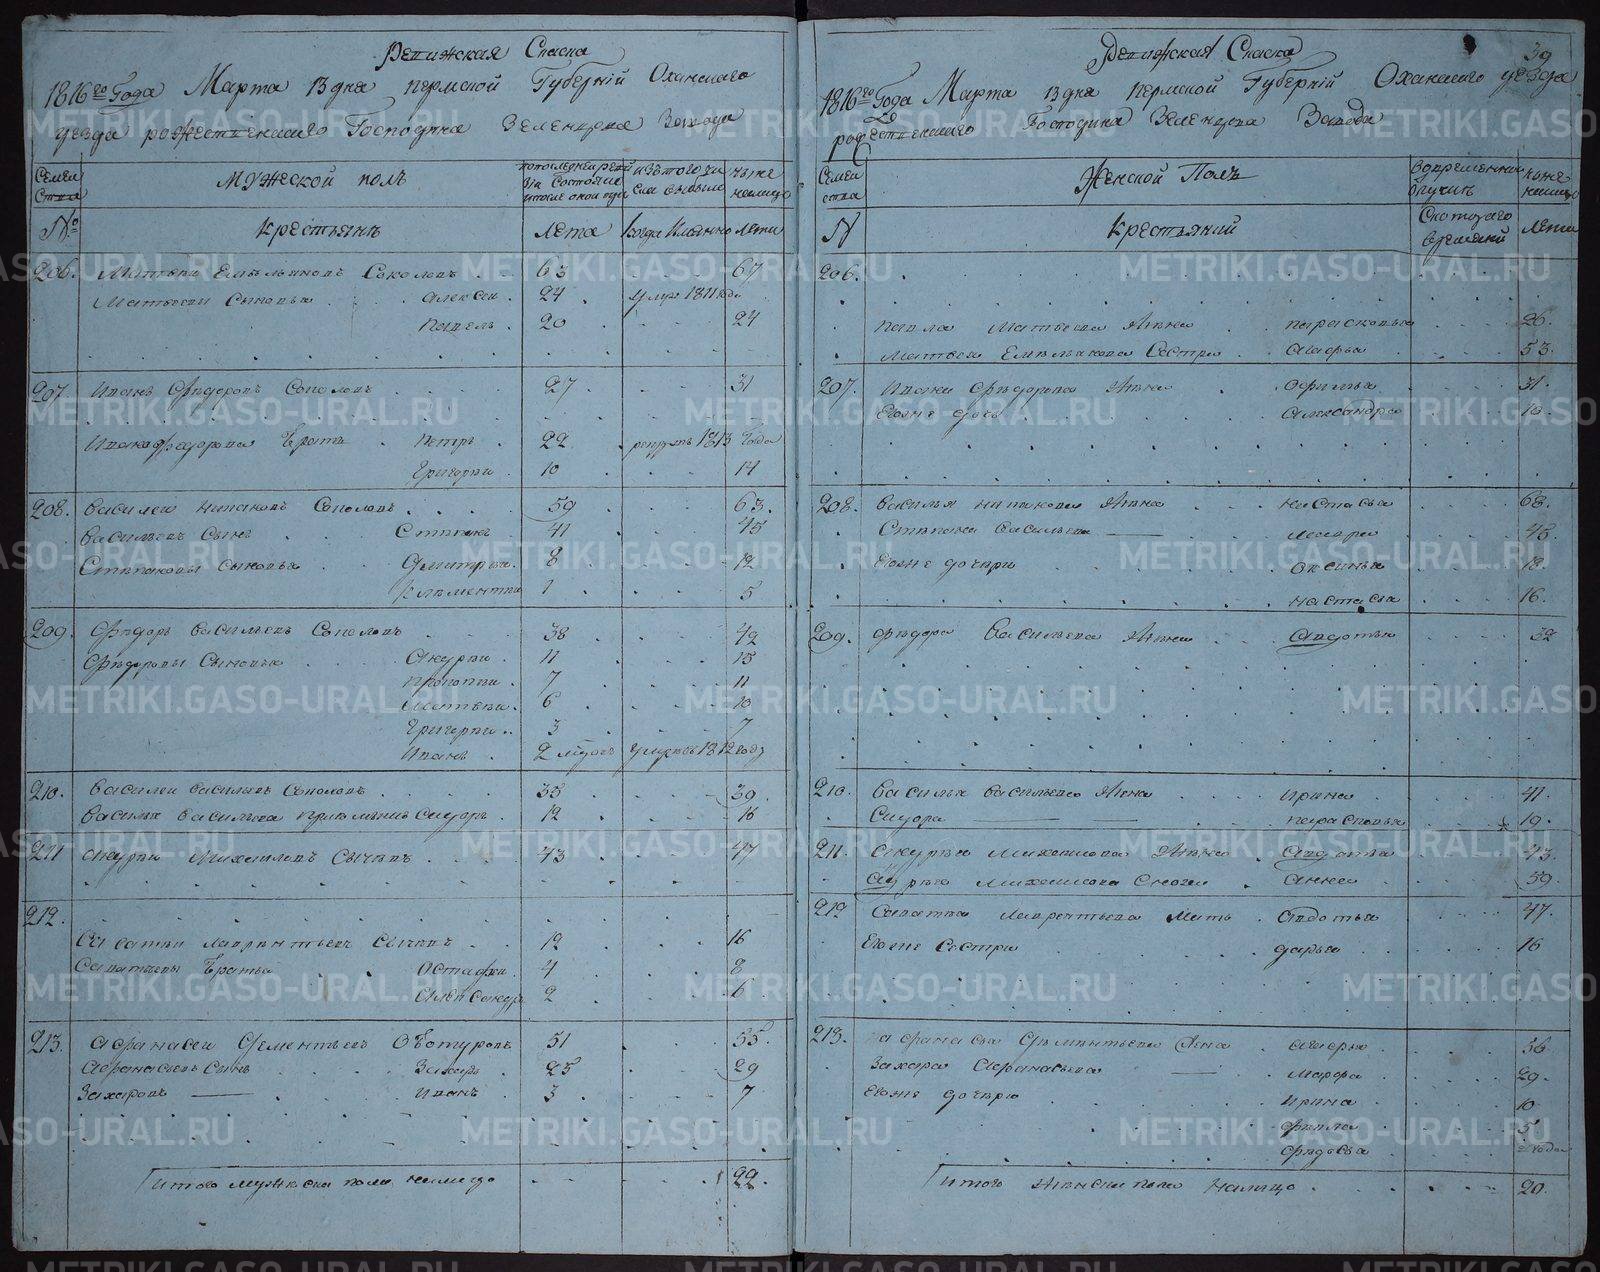 Ревижская Спаска
1816го Года Марта 13 дня пермской Губерніи Оханскаго
уезда рожественскаго Господина Зеленцова Завода
Семейства
мужеской полъ
ныне налицо
№
крестьянъ
Лета
когда Имянно
Лета
206. Матвеи Емельяновъ Соколовъ 63 67
Матвеевы Сыновья Алексеи 24 умре 1811 года
павелъ 20 24
207. Иванъ Федоровъ Соколовъ 27 31
Ивана Федорова Братъ петръ 22 рекрутъ 1813 Года
Григореи 10 14
208. Василеи Соколовъ 59 63
Васильевъ Сынъ Степанъ 41 45
Степановы Сыновья Дмитреи 8 12
Клементеи 1 5
209. Федоръ Васильевъ Соколовъ 38 42
Федоровы Сыновья 11 15
прокопеи 7 11
Матвеи 6 10
Григореи 3 7
Иванъ 2 умре 1812 году
210. Василеи Васильевъ Соколовъ 35 39
Василья Васильева Сидоръ 12 16
211 Михаиловъ Сычевъ 43 47
212.
Саватеи Лаврентьевъ Сычевъ 12 16
Саватеевы Братья Остафеи 4 8
Александръ 2 6
213. Афанасеи Дементьевъ 51 55
Афанасьевъ Сынъ Захаръ 25 29
Захаровъ — Иванъ 3 7
Итого мужеска пола налицо 22.
39
Ревижская Спаска
1816го Года Марта 13 дня пермской Губерніи Оханскаго уезда
рожественскаго Господина Зеленцова Завода
Семейства
Женской Полъ
ныне налицо
N
крестьяний
Лета
206.
павла Матвеева Жена парасковья 26.
Матвея Емельянова Сестра Марфа 53.
207. Ивана Федорова Жена Офимья 31.
Ево же дочь Александра 10.
208. Василья Жена Настасья 68.
Степана Васильева — Мавра 48.
Ево же дочери Оксинья 18.
Настасья 16.
209. Федора Васильева Жена Авдотья 32
210. Василья Васильева Жена Ирина 41.
Сидора — парасковья 19.
211. Михаилова Жена Авдотья 43.
Михаилова Анна 59.
212 Саватея Лаврентьева Мать Авдотья 47.
Ево же Сестра Дарья 16
213. Афанасья Дементьева Жена Марфа 56
Захара Афанасьева — Марфа 29.
Ево же дочери Ирина 10
Фекла 5
Федосья
Итого Женска пола Налицо 20.
METRIKI.GASO-URAL.RU